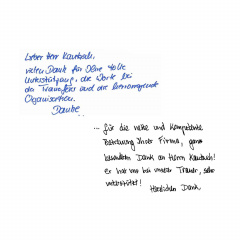 Lieber Herr Kautzsch,
vielen Dank für Ihre tolle
Unterstützung, die Worte bei
der Trauerfeier und die hervorragende
Organisation.
... für die nette und kompetente
Betreuung Ihrer Firma, ganz
besonderen Dank an Herrn Kautzsch!
er hat uns bei unserer Trauer, sehr
unterstützt!
Herzlichen Dank